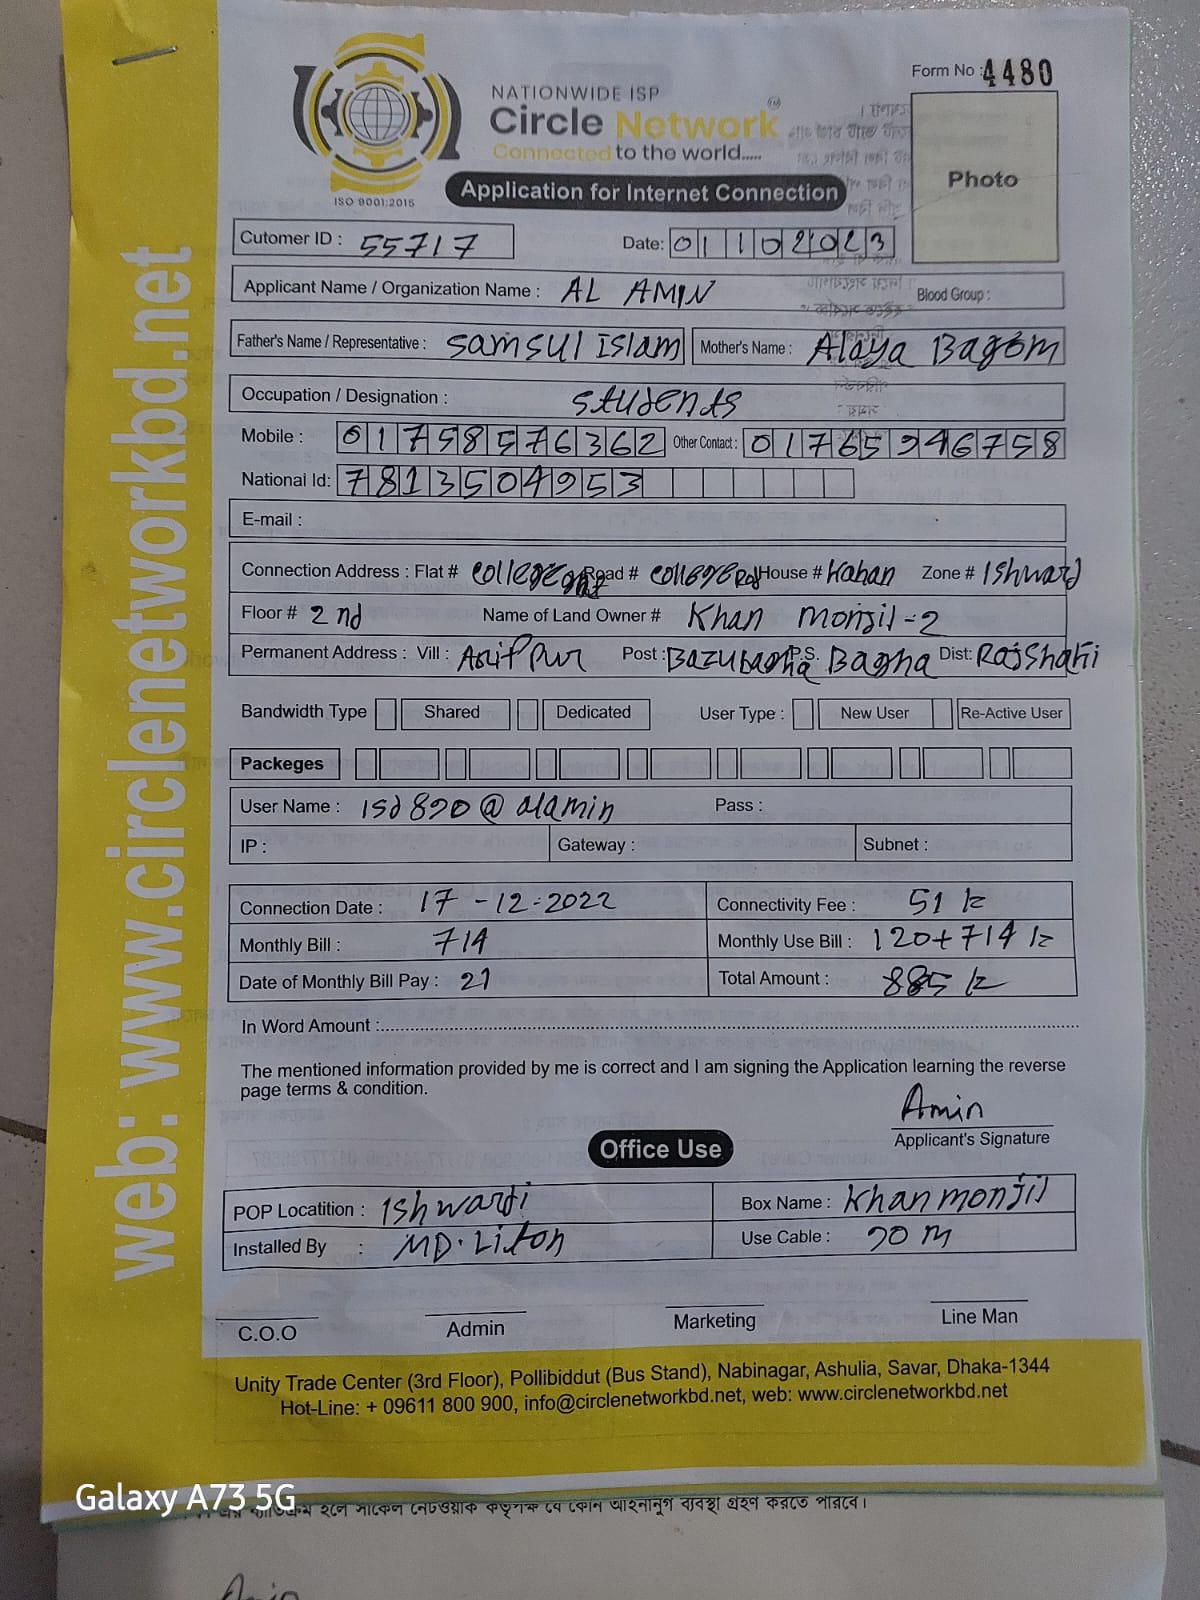 Form No : 4480
NATIONWIDE ISP
Circle Network
Connected to the world.....
ISO 9001:2015
Photo
Application for Internet Connection
Cutomer ID : 55717 Date: 01 10 2023
Applicant Name / Organization Name : AL AMIN Blood Group :
Father's Name / Representative : Samsul Islam Mother's Name : Alaya Bagom
Occupation / Designation : students
Mobile : 01758576362 Other Contact : 01765946758
National Id: 7813504953
E-mail :
Connection Address : Flat # college Road # college House # Kahan Zone # Ishward
Floor # 2nd Name of Land Owner # Khan monjil-2
Permanent Address : Vill : Arifpur Post : Bazubagha P.S. Bagha Dist: Rajshahi
Bandwidth Type Shared Dedicated User Type : New User Re-Active User
Packeges
User Name : isd890@alamin Pass :
IP : Gateway : Subnet :
Connection Date : 17-12-2022 Connectivity Fee : 51
Monthly Bill : 714 Monthly Use Bill : 120+714
Date of Monthly Bill Pay : 21 Total Amount : 885
In Word Amount :
The mentioned information provided by me is correct and I am signing the Application learning the reverse
page terms & condition.
Amin
Applicant's Signature
Office Use
POP Locatition : Ishwardi Box Name : Khan monjil
Installed By : MD. Liton Use Cable : 70 m
C.O.O Admin Marketing Line Man
Unity Trade Center (3rd Floor), Pollibiddut (Bus Stand), Nabinagar, Ashulia, Savar, Dhaka-1344
Hot-Line: + 09611 800 900, info@circlenetworkbd.net, web: www.circlenetworkbd.net
web: www.circlenetworkbd.net
Galaxy A73 5G
হলে সার্কেল নেটওয়ার্ক কর্তৃপক্ষ যে কোন আইনানুগ ব্যবস্থা গ্রহণ করতে পারবে।
Amin